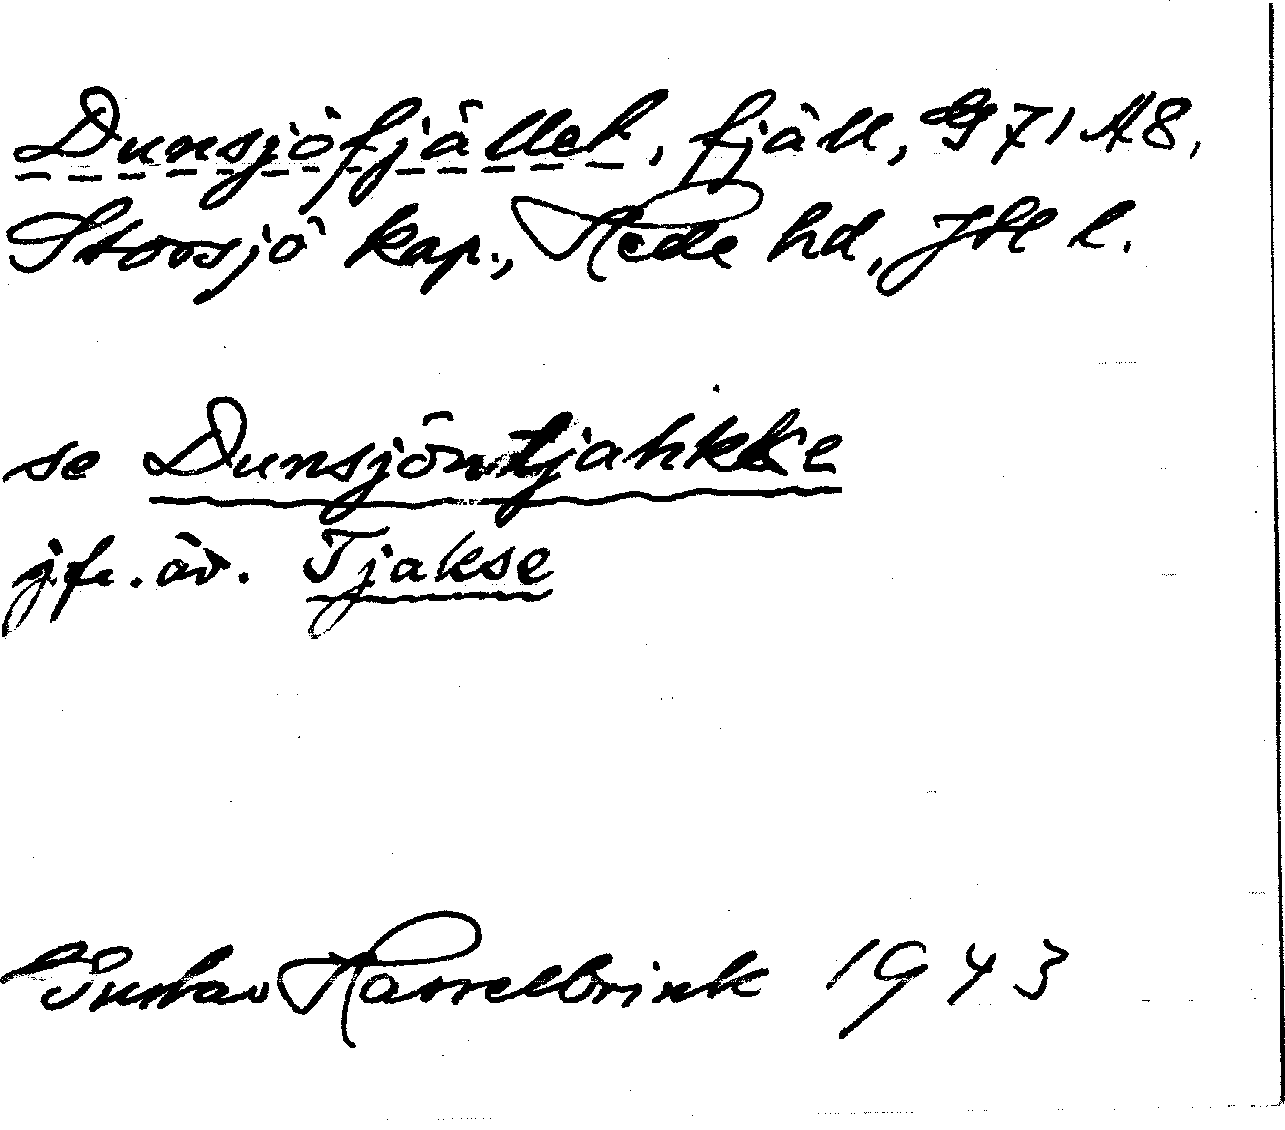 Dunsjöfjället, fjäll, G 71 A8,
Storsjö kap., Hede hd, Jtl l.
se Dunsjöntjahkke
jfr. äv. Tjakse
Gustav Hasselbrink 1943